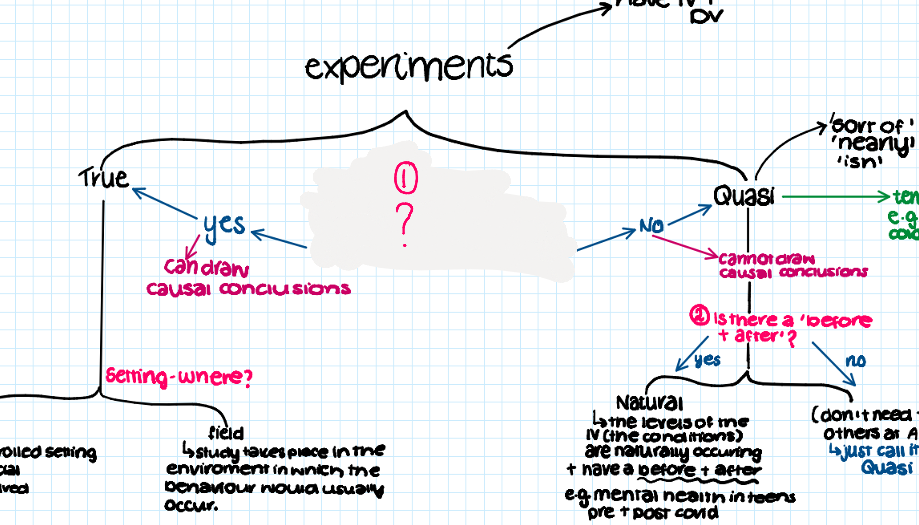 have IV +
DV
experiments
'sort of'
'nearly'
'isn'
True
①
?
Quasi
yes
No
e.g
can draw
causal conclusions
cannot draw
causal conclusions
② Is there a 'before
+ after'?
yes
no
Setting-where?
Natural
↳the levels of the
IV (the conditions)
are naturally occuring
+ have a before + after
e.g mental health in teens
pre + post covid
(don't need
others at A
↳just call it
Quasi
field
↳study takes place in the
enviroment in which the
behaviour would usually
occur.
setting